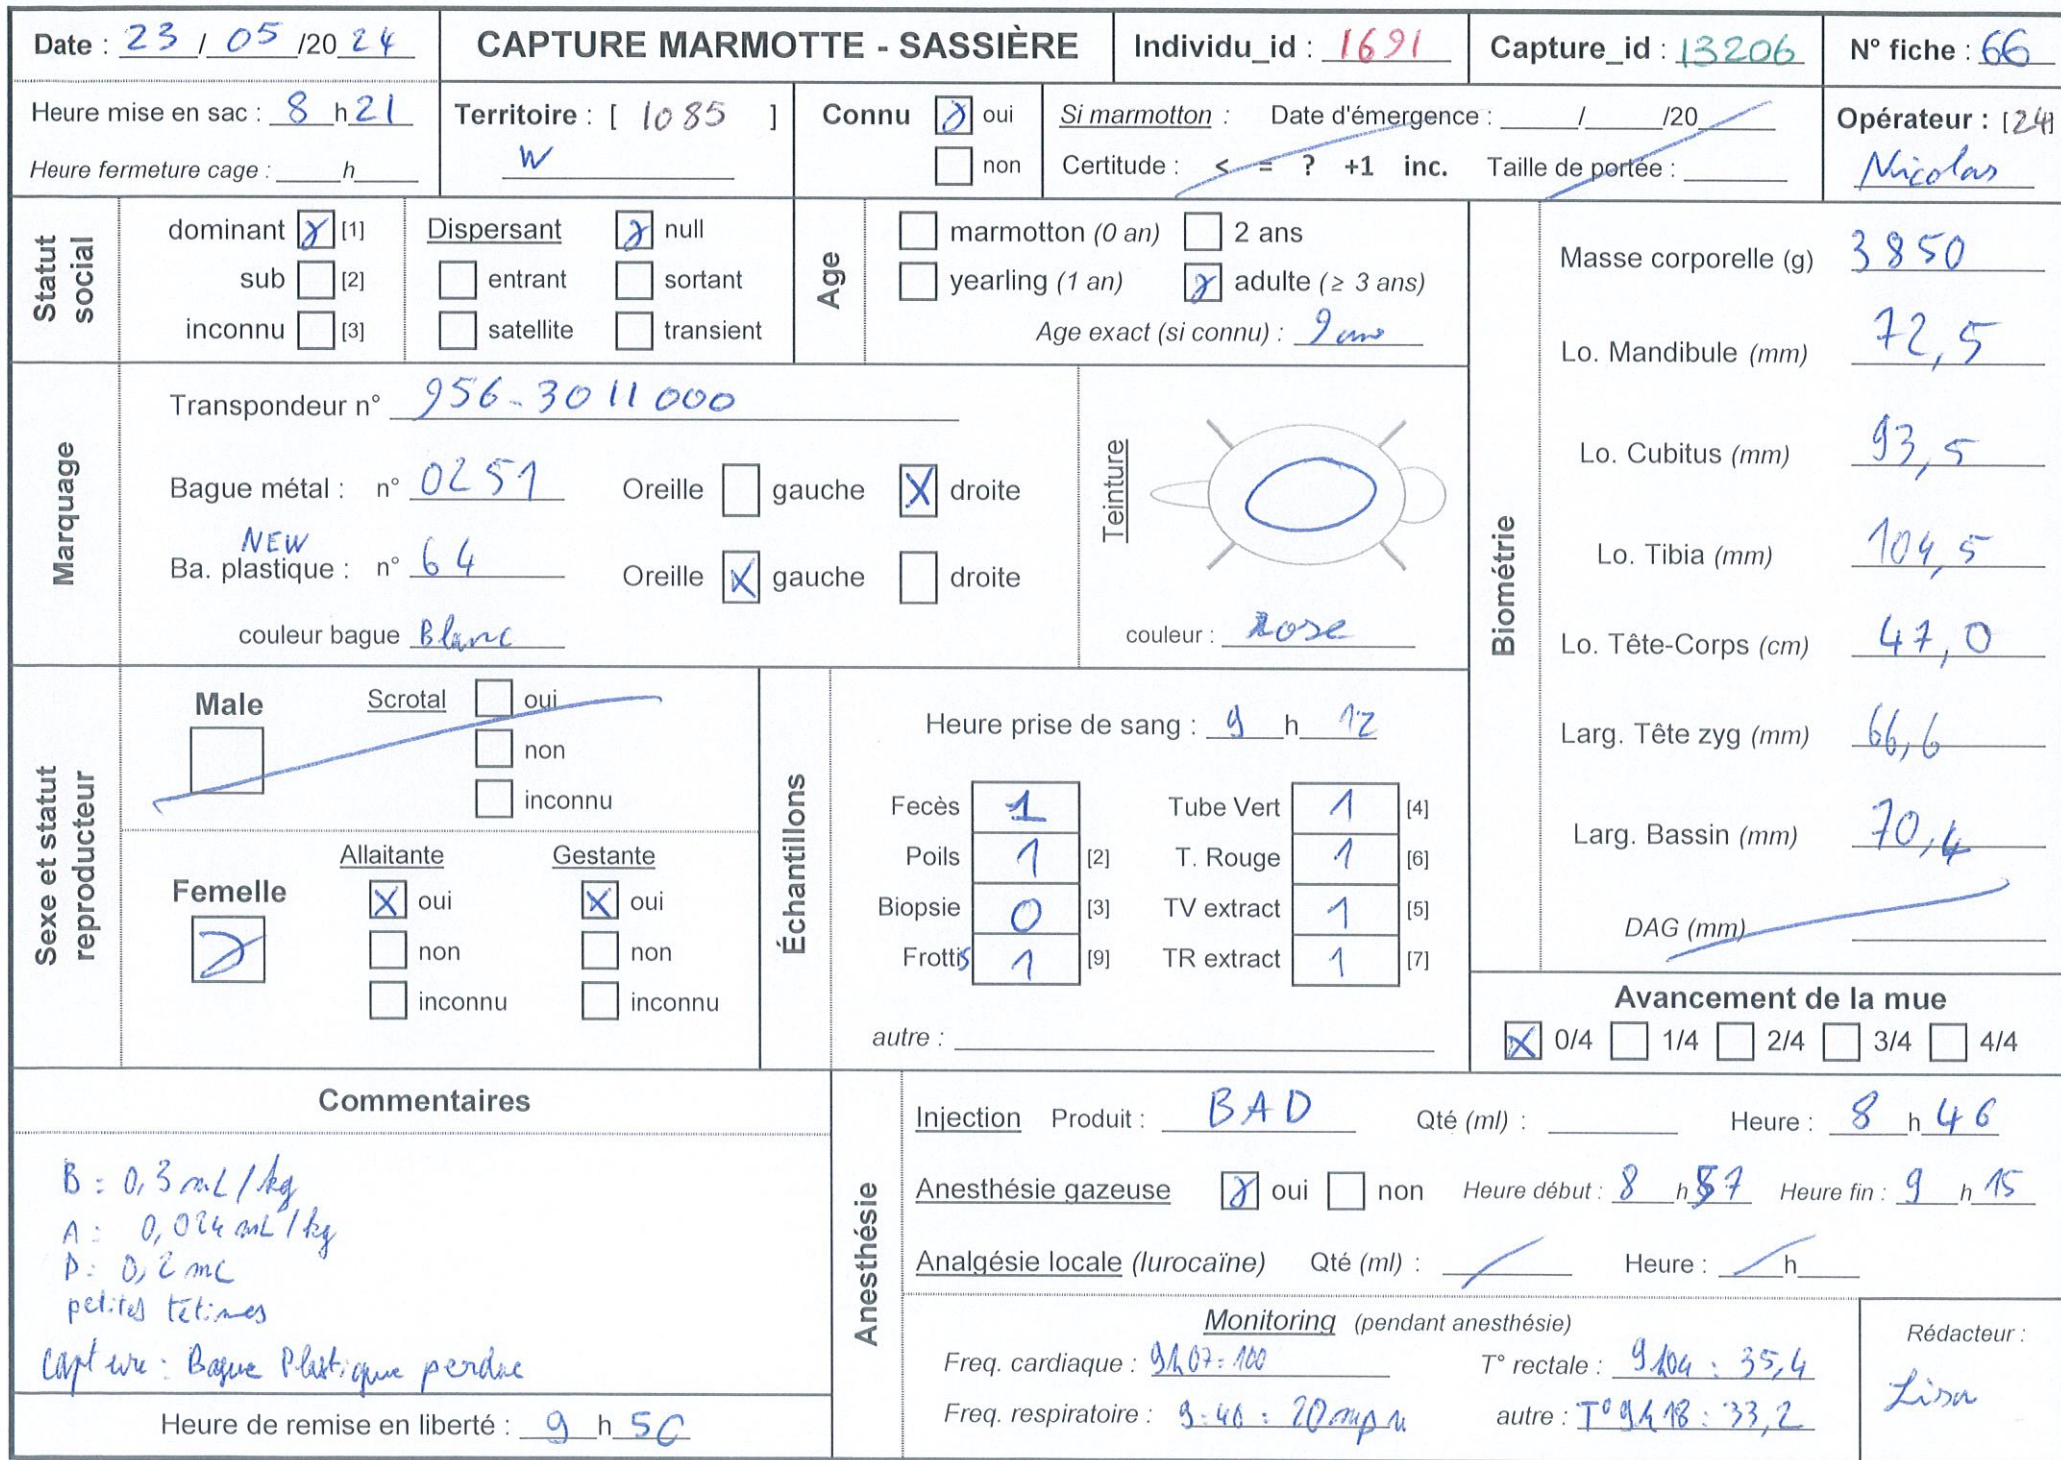 Date : 23 / 05 /20 24
CAPTURE MARMOTTE - SASSIÈRE
Individu_id : 1691
Capture_id : 13206
N° fiche : 66
Heure mise en sac : 8 h 21
Heure fermeture cage : ____h____
Territoire : [ 1085 ]
W
Connu oui
non
Si marmotton : Date d'émergence : ____/____/20____
Certitude : < = ? +1 inc. Taille de portée : ____
Opérateur : [24]
Nicolas
Statut social
dominant [1]
sub [2]
inconnu [3]
Dispersant null
entrant sortant
satellite transient
Age
marmotton (0 an) 2 ans
yearling (1 an) adulte (≥ 3 ans)
Age exact (si connu) : 9 ans
Marquage
Transpondeur n° 956-3011000
Bague métal : n° 0251 Oreille gauche droite
NEW
Ba. plastique : n° 64 Oreille gauche droite
couleur bague Blanc
Teinture
couleur : rose
Biométrie
Masse corporelle (g) 3850
Lo. Mandibule (mm) 72,5
Lo. Cubitus (mm) 93,5
Lo. Tibia (mm) 104,5
Lo. Tête-Corps (cm) 47,0
Larg. Tête zyg (mm) 66,6
Larg. Bassin (mm) 70,4
DAG (mm)
Avancement de la mue
0/4 1/4 2/4 3/4 4/4
Sexe et statut reproducteur
Male
Scrotal oui
non
inconnu
Femelle
Allaitante
oui
non
inconnu
Gestante
oui
non
inconnu
Échantillons
Heure prise de sang : 9 h 12
Fecès 1 Tube Vert 1 [4]
Poils 1 [2] T. Rouge 1 [6]
Biopsie 0 [3] TV extract 1 [5]
Frottis 1 [9] TR extract 1 [7]
autre :
Commentaires
B : 0,3 mL/kg
A : 0,024 mL/kg
D : 0,2 mL
petites tétines
capture : Bague Plastique perdue
Heure de remise en liberté : 9 h 50
Anesthésie
Injection Produit : BAD Qté (ml) : ____ Heure : 8 h 46
Anesthésie gazeuse oui non Heure début : 8 h 57 Heure fin : 9 h 15
Analgésie locale (lurocaïne) Qté (ml) : ____ Heure : ____h____
Monitoring (pendant anesthésie)
Freq. cardiaque : 9h07 = 100
T° rectale : 9h04 : 35,4
Freq. respiratoire : 9:40 : 20
autre : T° 9h18 : 33,2
Rédacteur :
Lisa